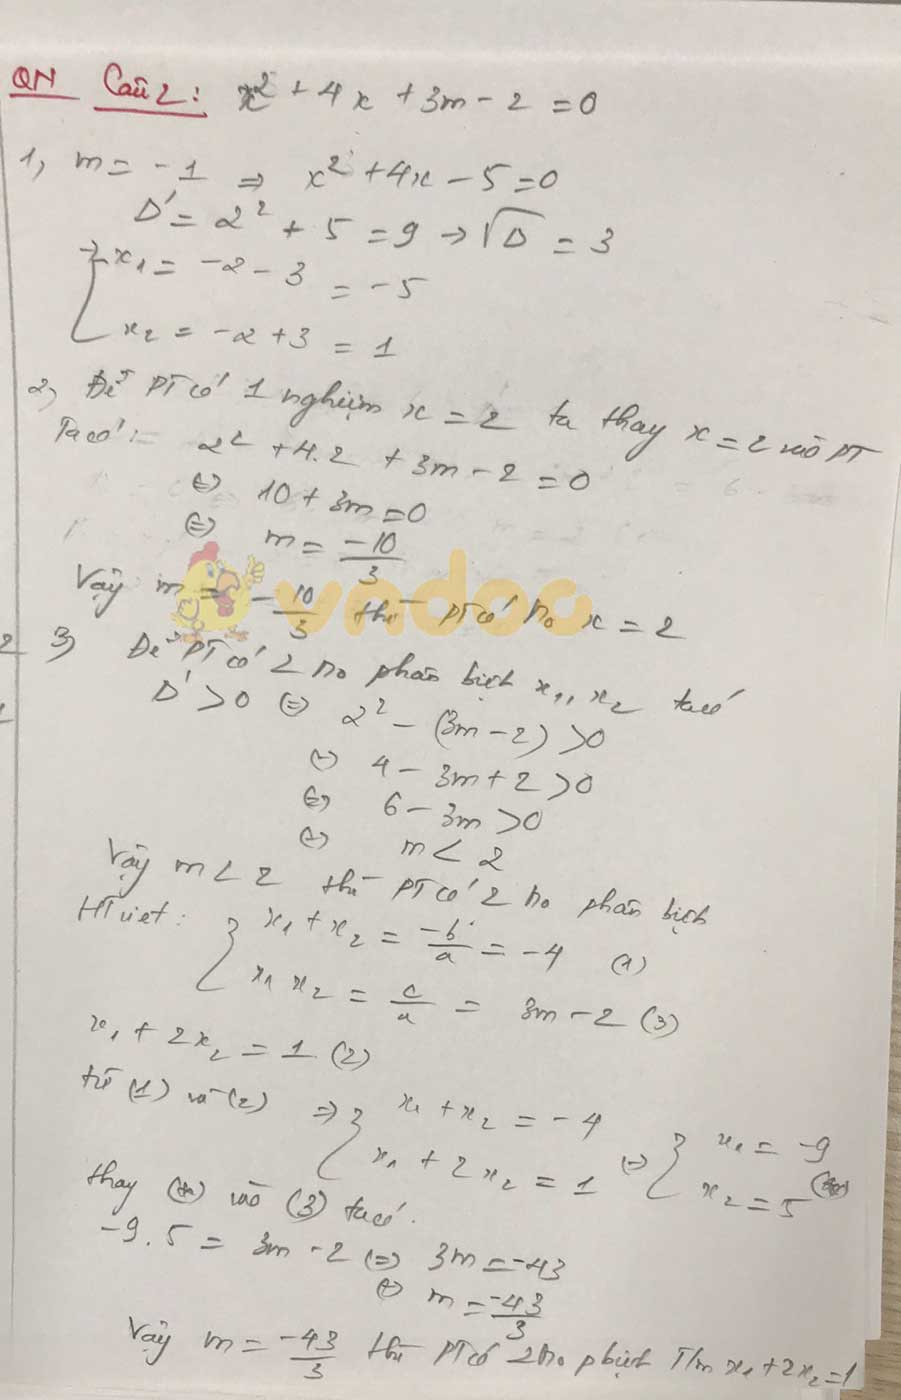 QN Câu 2: x² + 4x + 3m - 2 = 0
1, m = -1 ⇒ x² + 4x - 5 = 0
Δ' = 2² + 5 = 9 → √Δ = 3
⇒ { x₁ = -2 - 3 = -5
x₂ = -2 + 3 = 1
2, Để PT có 1 nghiệm x = 2 ta thay x = 2 vào PT
Ta có: 2² + 4.2 + 3m - 2 = 0
⇔ 10 + 3m = 0
⇔ m = -10/3
vndoc
Vậy m = -10/3 thì PT có no x = 2
3) Để PT có 2 no phân biệt x₁, x₂ ta có
Δ' > 0 ⇔ 2² - (3m - 2) > 0
⇔ 4 - 3m + 2 > 0
⇔ 6 - 3m > 0
⇔ m < 2
Vậy m < 2 thì PT có 2 no phân biệt
HT viet: { x₁ + x₂ = -b/a = -4 (1)
x₁ x₂ = c/a = 3m - 2 (3)
x₁ + 2x₂ = 1 (2)
từ (1) và (2) ⇒ { x₁ + x₂ = -4
x₁ + 2x₂ = 1 ⇔ { x₁ = -9
x₂ = 5 (*)
thay (*) vào (3) ta có.
-9.5 = 3m - 2 ⇔ 3m = -43
⇔ m = -43/3
Vậy m = -43/3 thì PT có 2 no pbiệt T/m x₁ + 2x₂ = 1